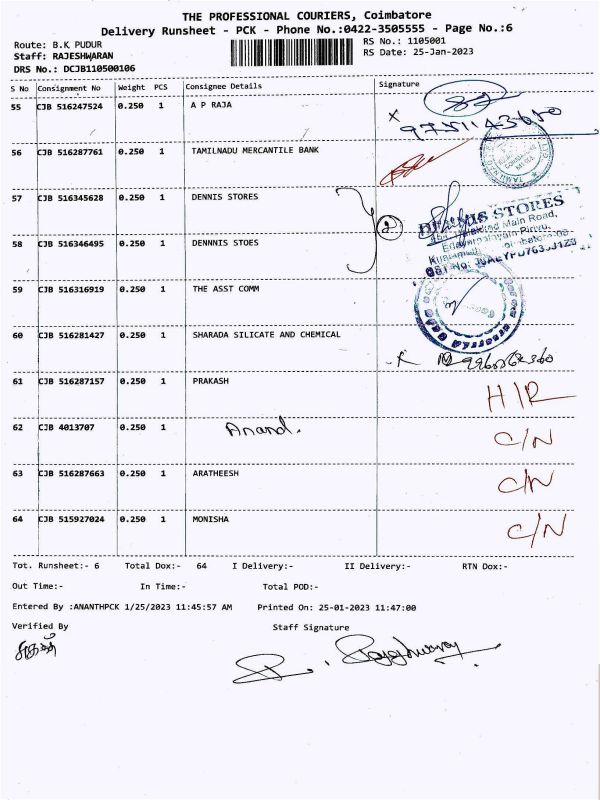 THE PROFESSIONAL COURIERS, Coimbatore
Delivery Runsheet - PCK - Phone No.:0422-3505555 - Page No.:6
Route: B.K PUDUR
RS No.: 1105001
Staff: RAJESHWARAN
RS Date: 25-Jan-2023
DRS No.: DCJB110500106
S No Consignment No Weight PCS Consignee Details Signature
55 CJB 516247524 0.250 1 A P RAJA
56 CJB 516287761 0.250 1 TAMILNADU MERCANTILE BANK
57 CJB 516345628 0.250 1 DENNIS STORES
2
DENNIS STORES
Main Road,
58 CJB 516346495 0.250 1 DENNNIS STOES
59 CJB 516316919 0.250 1 THE ASST COMM
60 CJB 516281427 0.250 1 SHARADA SILICATE AND CHEMICAL
61 CJB 516287157 0.250 1 PRAKASH H/R
62 CJB 4013707 0.250 1 Anand. C/N
63 CJB 516287663 0.250 1 ARATHEESH C/N
64 CJB 515927024 0.250 1 MONISHA C/N
Tot. Runsheet:- 6 Total Dox:- 64 I Delivery:- II Delivery:- RTN Dox:-
Out Time:- In Time:- Total POD:-
Entered By :ANANTHPCK 1/25/2023 11:45:57 AM Printed On: 25-01-2023 11:47:00
Verified By Staff Signature